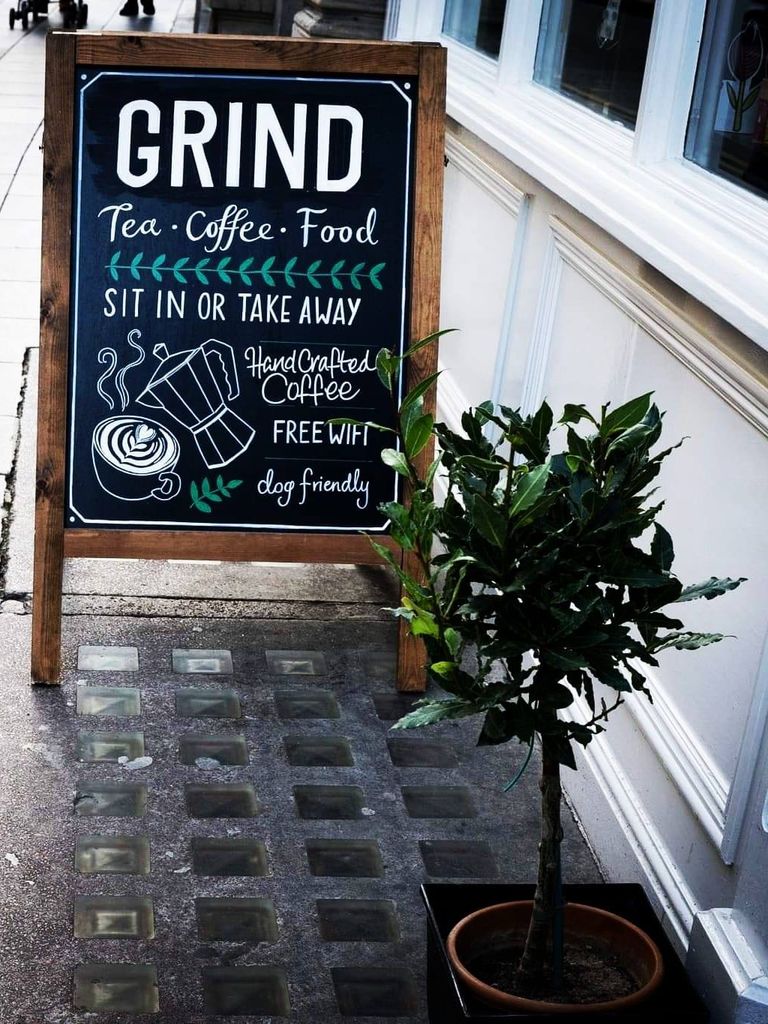 GRIND
Tea · Coffee · Food
SIT IN OR TAKE AWAY
HandCrafted
Coffee
FREE WIFI
dog friendly